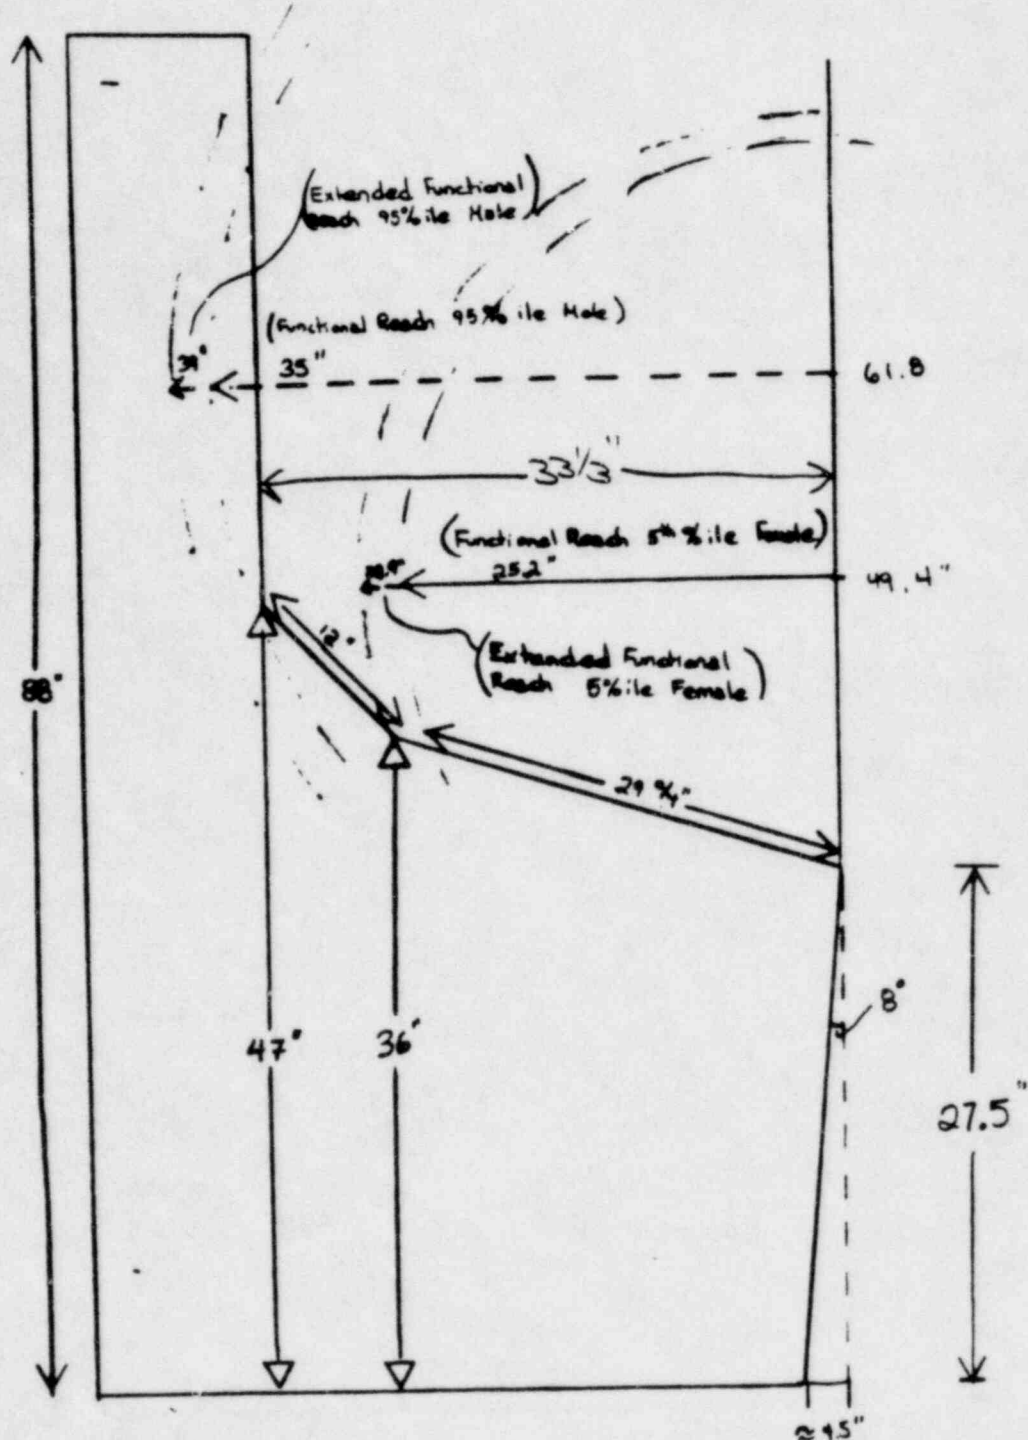 (Extended Functional
Reach 95%ile Male)
(Functional Reach 95% ile Male)
39"
35"
61.8
33 1/3"
(Functional Reach 5th %ile Female)
25.2"
49.4"
12"
(Extended Functional
Reach 5%ile Female)
88"
29 3/4"
8°
47"
36"
27.5"
≈ 4.5"